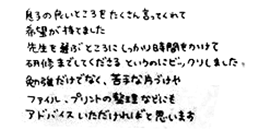 息子の良いところをたくさん言ってくれて
希望が持てました
先生を選ぶところにしっかり時間をかけて
研修までしてくださるというのにビックリしました。
勉強だけでなく、苦手な片づけや
ファイル、プリントの整理などにも
アドバイスいただければと思います